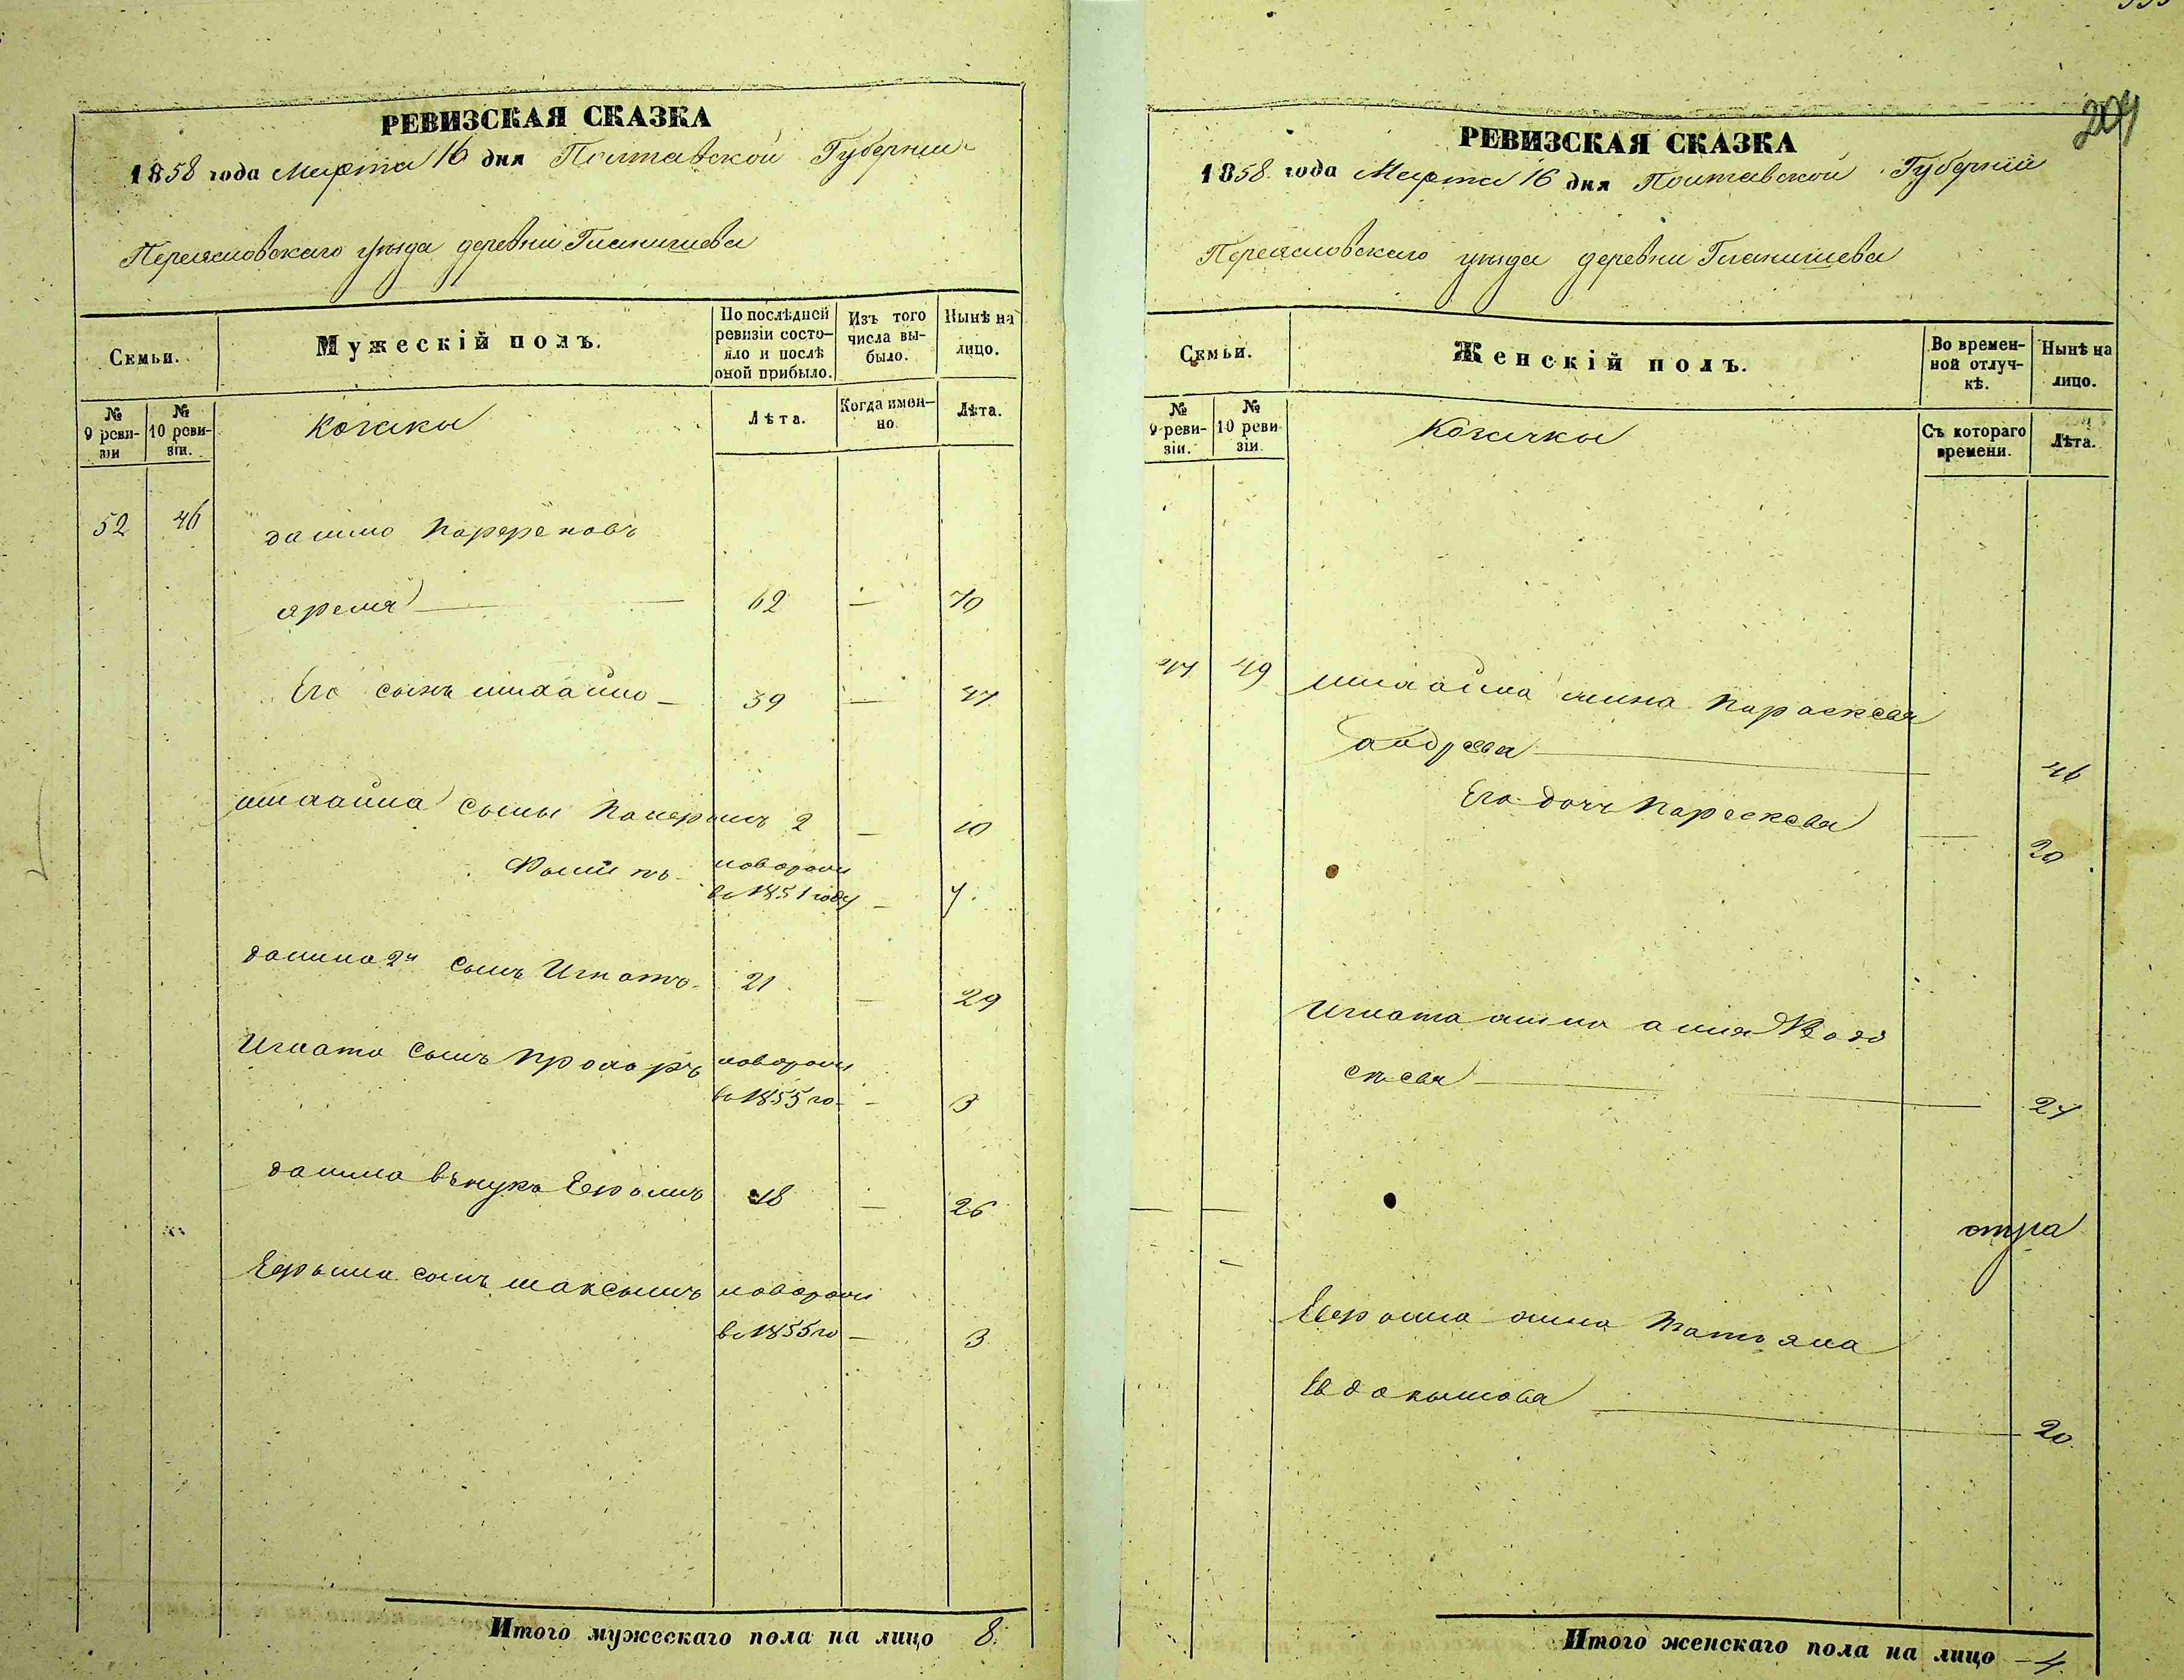 РЕВИЗСКАЯ СКАЗКА
1858 года Марта 16 дня Полтавской Губернии
Переясловскаго уѣзда деревни Гланишева
Семьи.
Мужескій полъ.
По послѣдней ревизіи состояло и послѣ оной прибыло.
Изъ того числа выбыло.
Нынѣ на лицо.
№ 9 ревизіи
№ 10 ревизіи.
Козаки
Лѣта.
Когда именно.
Лѣта.
52 46 данило
ярема — 62 — 70
Его сынъ михайло — 39 — 47
михайла сыны 2 — 10
Филипъ новорожд
во 1851 году — 7.
данила 2й сынъ Игнатъ. 21 — 29
Игната сынъ прохоръ новорожд
во 1855 го — 3
данила внукъ 18 — 26
сынъ максымъ новорожд
во 1855 го — 3
Итого мужескаго пола на лицо 8.
204
РЕВИЗСКАЯ СКАЗКА
1858 года Марта 16 дня Полтавской Губернии
Переясловскаго уѣзда деревни Гланишева
Семьи.
Женскій полъ.
Во временной отлучкѣ.
Нынѣ на лицо.
№ 9 ревизіи.
№ 10 ревизіи.
Козачки
Съ котораго времени.
Лѣта.
49 михайла жина Параскевя
андреева — 46
Его дочь Параскева — 20
Игната жина анна
— 27
жина Татьяна
Евдокымова — 20.
Итого женскаго пола на лицо — 4.